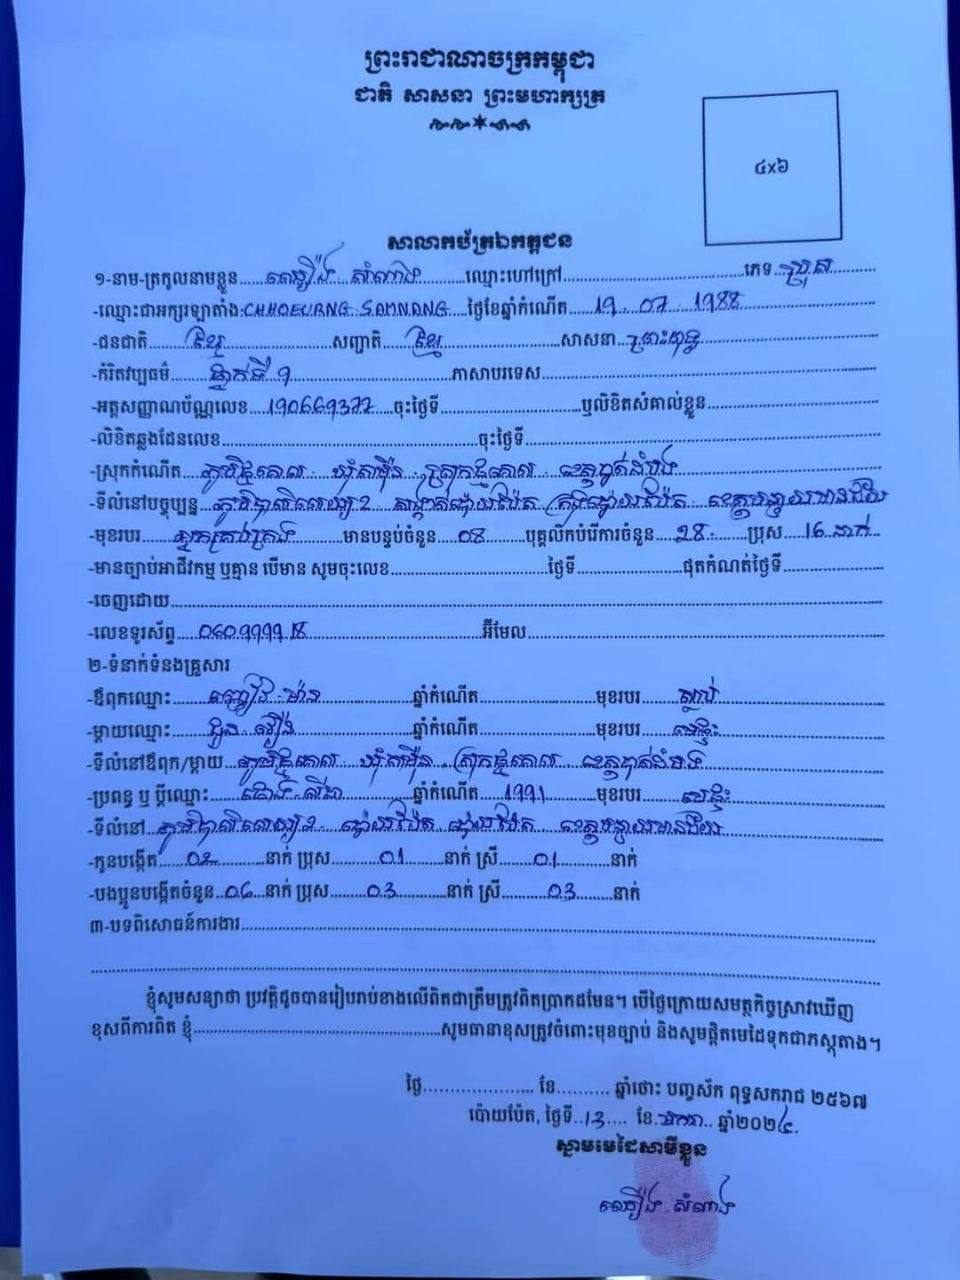 ព្រះរាជាណាចក្រកម្ពុជា
ជាតិ សាសនា ព្រះមហាក្សត្រ
៤x៦
សាលាកប័ត្រឯកត្តជន
១-នាម-ត្រកូលនាមខ្លួន ឈឿង សំណាង ឈ្មោះហៅក្រៅ ភេទ ប្រុស
-ឈ្មោះជាអក្សរឡាតាំង:CHHOEURNG SAMNANG ថ្ងៃខែឆ្នាំកំណើត 19 07 1988
-ជនជាតិ ខ្មែរ សញ្ជាតិ ខ្មែរ សាសនា ព្រះពុទ្ធ
-កំរិតវប្បធម៌ ថ្នាក់ទី 9 ភាសាបរទេស
-អត្តសញ្ញាណប័ណ្ណលេខ 190669377 ចុះថ្ងៃទី ឬលិខិតសំគាល់ខ្លួន
-លិខិតឆ្លងដែនលេខ ចុះថ្ងៃទី
-ស្រុកកំណើត ភូមិថ្មគោល ឃុំតាម៉ឺន ស្រុកថ្មគោល ខេត្តបាត់ដំបង
-ទីលំនៅបច្ចុប្បន្ន ភូមិបាលិលេយ្យ2 សង្កាត់ប៉ោយប៉ែត ក្រុងប៉ោយប៉ែត ខេត្តបន្ទាយមានជ័យ
-មុខរបរ អ្នកគ្រប់គ្រង មានបន្ទប់ចំនួន 08 បុគ្គលិកបំរើការចំនួន 28 ប្រុស 16 នាក់
-មានច្បាប់អាជីវកម្ម ឬគ្មាន បើមាន សូមចុះលេខ ថ្ងៃទី ផុតកំណត់ថ្ងៃទី
-ចេញដោយ
-លេខទូរស័ព្ទ 060999918 អ៊ីមែល
២-ទំនាក់ទំនងគ្រួសារ
-ឪពុកឈ្មោះ ឈឿង ម៉ាន ឆ្នាំកំណើត មុខរបរ ស្លាប់
-ម្តាយឈ្មោះ ជួន រឿង ឆ្នាំកំណើត មុខរបរ មេផ្ទះ
-ទីលំនៅឪពុក/ម្តាយ ភូមិថ្មគោល ឃុំតាម៉ឺន ស្រុកថ្មគោល ខេត្តបាត់ដំបង
-ប្រពន្ធ ឬ ប្តីឈ្មោះ ឆ្នាំកំណើត 1991 មុខរបរ មេផ្ទះ
-ទីលំនៅ ភូមិបាលិលេយ្យ2 ប៉ោយប៉ែត ប៉ោយប៉ែត ខេត្តបន្ទាយមានជ័យ
-កូនបង្កើត 02 នាក់ ប្រុស 01 នាក់ ស្រី 01 នាក់
-បងប្អូនបង្កើតចំនួន 06 នាក់ ប្រុស 03 នាក់ ស្រី 03 នាក់
៣-បទពិសោធន៍ការងារ
ខ្ញុំសូមសន្យាថា ប្រវត្តិដូចបានរៀបរាប់ខាងលើពិតជាត្រឹមត្រូវពិតប្រាកដមែន។ បើថ្ងៃក្រោយសមត្ថកិច្ចស្រាវឃើញ
ខុសពីការពិត ខ្ញុំ សូមធានាខុសត្រូវចំពោះមុខច្បាប់ និងសូមផ្តិតមេដៃទុកជាភស្តុតាង។
ថ្ងៃ ខែ ឆ្នាំថោះ បញ្ចស័ក ពុទ្ធសករាជ ២៥៦៧
ប៉ោយប៉ែត, ថ្ងៃទី 13 ខែ មករា ឆ្នាំ២០២៤
ស្នាមមេដៃសាមីខ្លួន
ឈឿង សំណាង